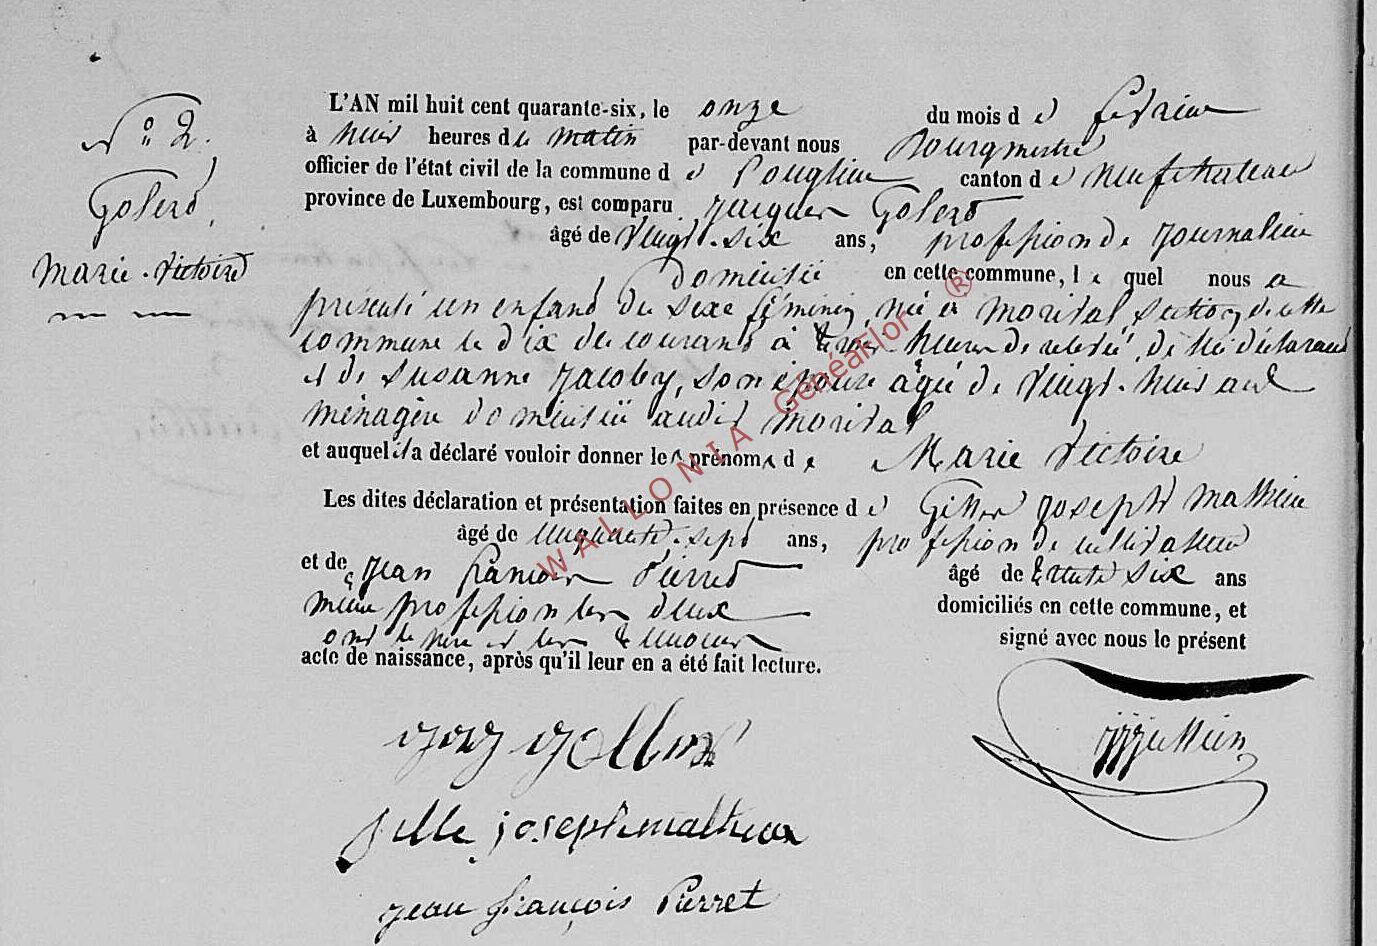 N° 2.
Goferd,
Marie-Victoire
L'AN mil huit cent quarante-six, le onze du mois d e février
à huit heures du matin par-devant nous Bourgmestre
officier de l'état civil de la commune d e canton d e neufchateau
province de Luxembourg, est comparu Jacques Goferd
âgé de vingt-six ans, profession de journalier
domicilié en cette commune, l e quel nous a
présenté un enfant du sexe féminin, née à morival section de cette
commune le dix du courant à heures de relevée, de lui déclarant
et de Susanne Jacoby, son épouse âgée de vingt-huit ans
ménagère domiciliée audit morival
et auquel il a déclaré vouloir donner les prénoms d e Marie Victoire
Les dites déclaration et présentation faites en présence d e Joseph Mathieu
âgé de sept ans, profession de cultivateur
et de Jean françois Pierret âgé de trente six ans
même profession les deux domiciliés en cette commune, et
ont le père et les témoins signé avec nous le présent
acte de naissance, après qu'il leur en a été fait lecture.
gille joseph mathieu
jean françois Pierret
WALLONIA GénéaFlor ®